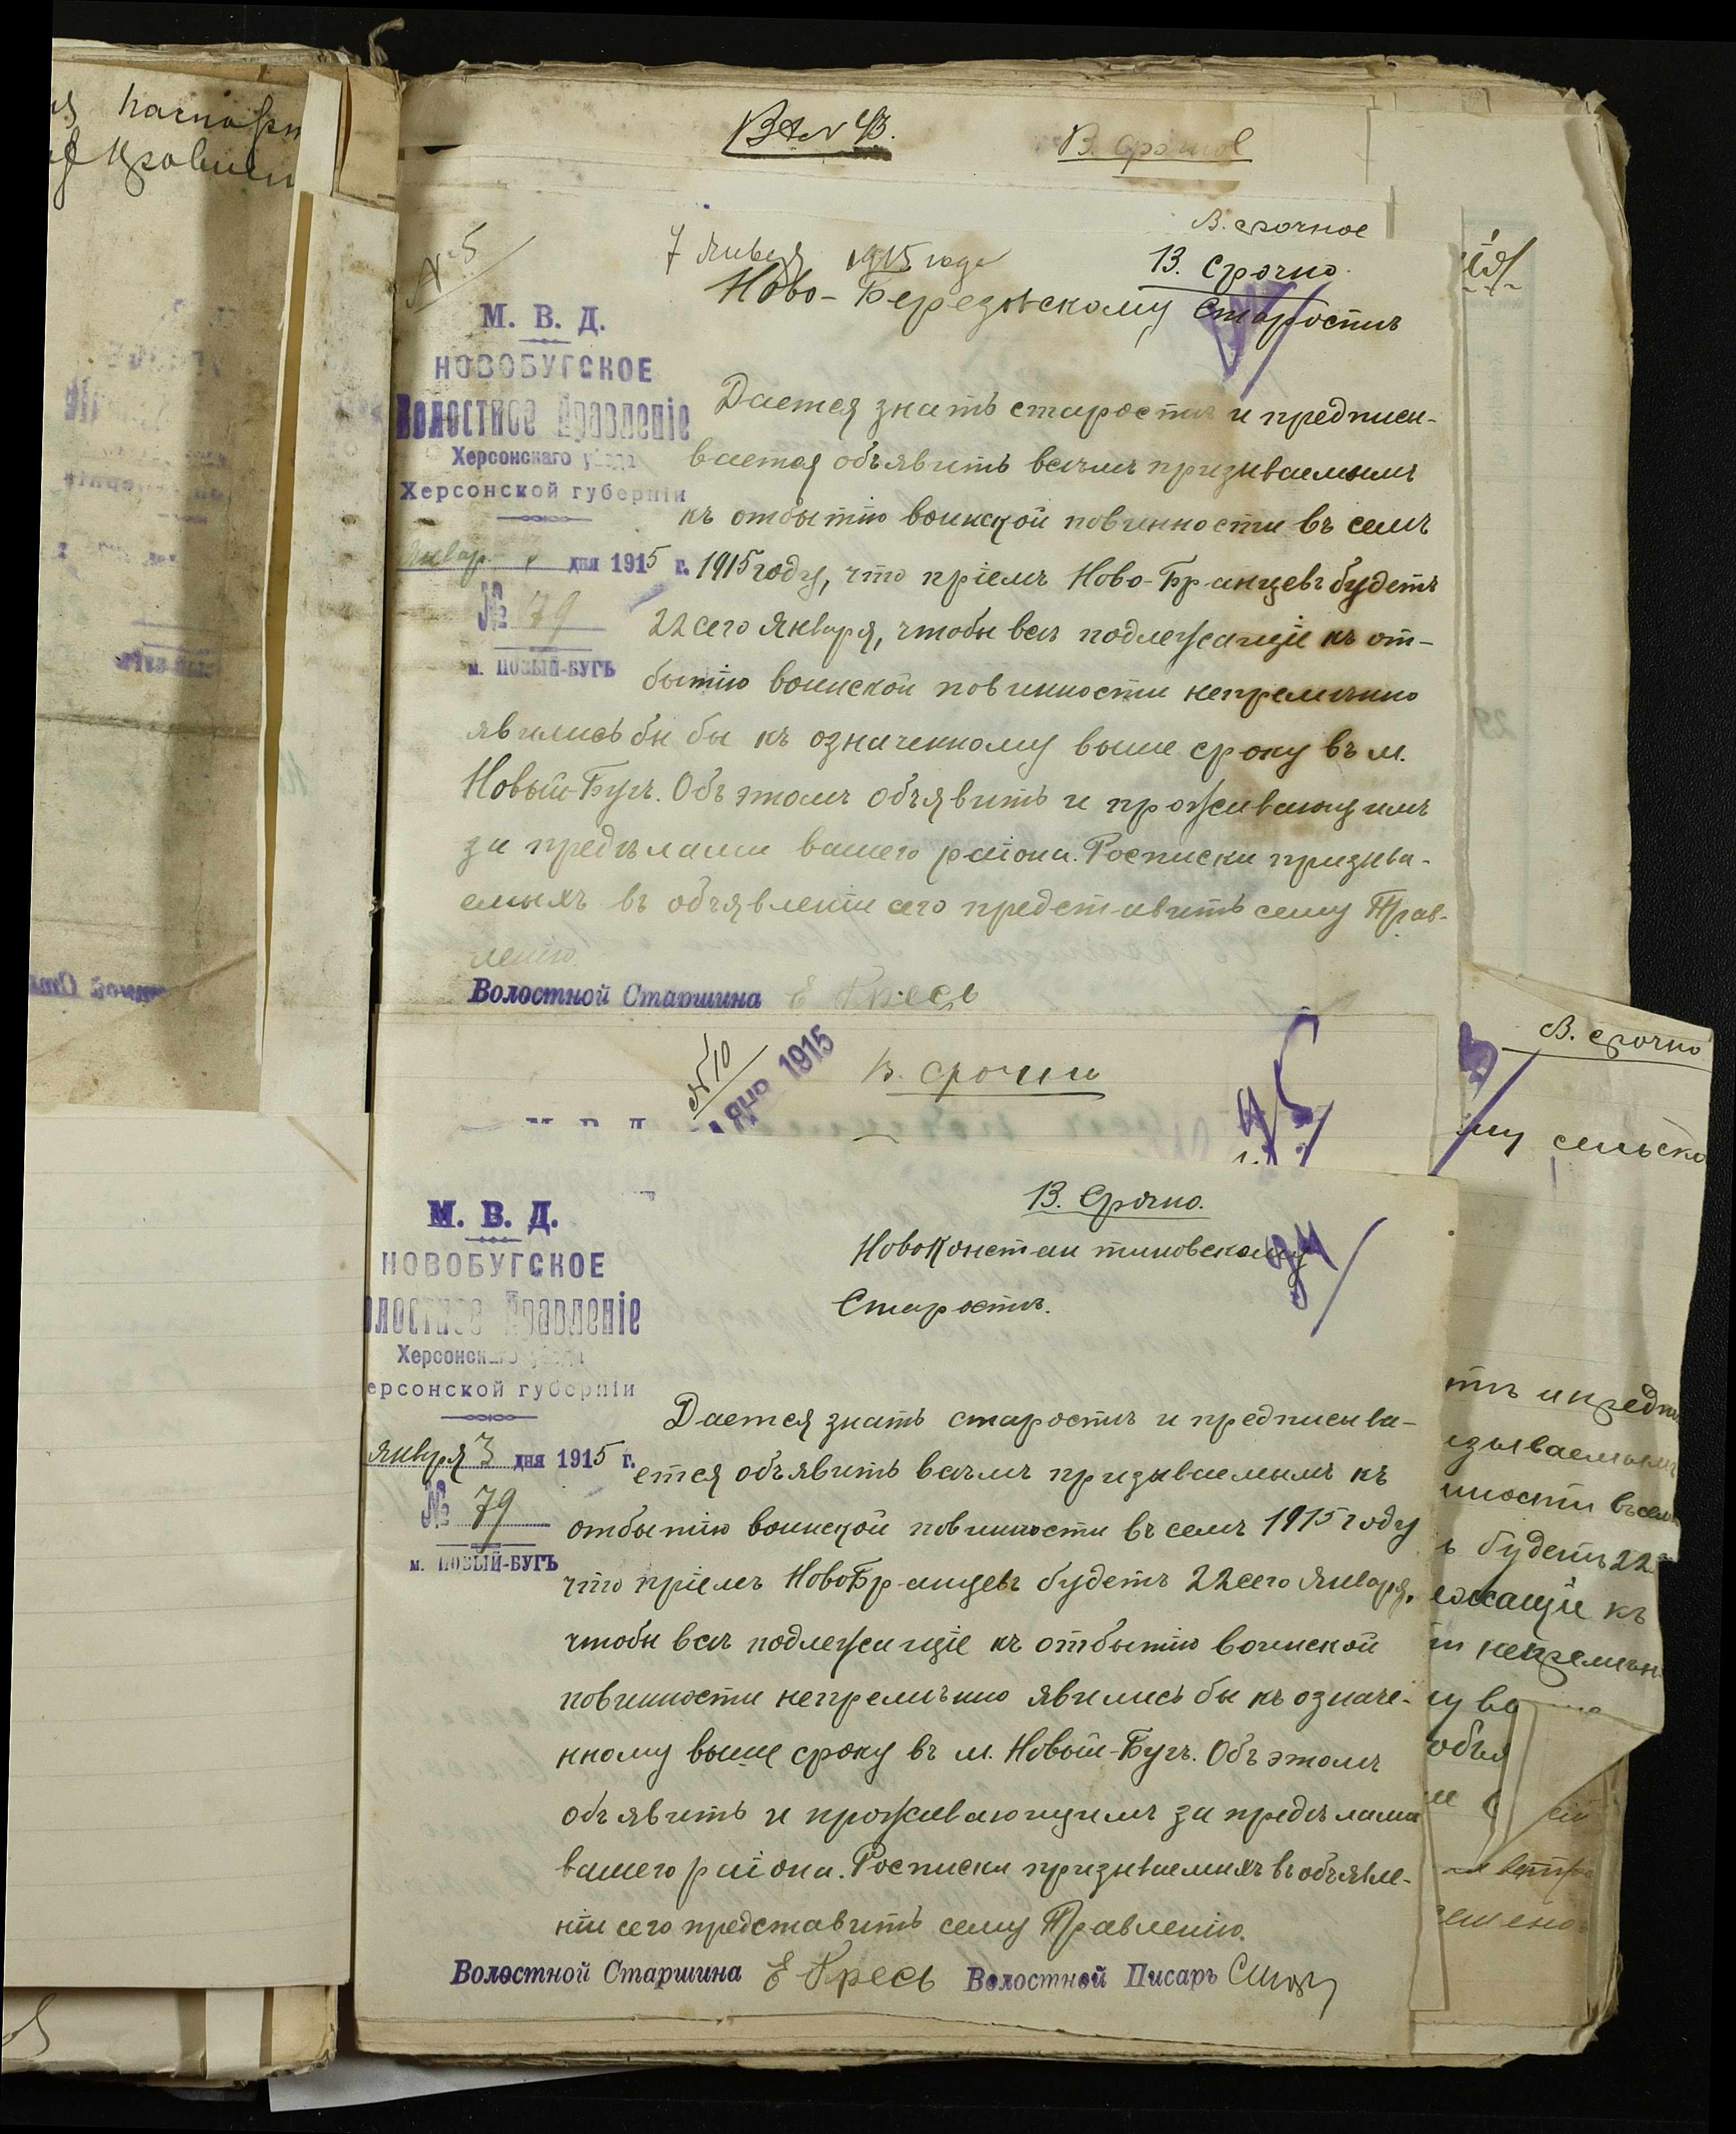 В. срочное
№ 5
7 Января 1915 года
В. Срочно.
Ново-Березовскому Старостѣ
М. В. Д.
НОВОБУГСКОЕ
Волостное Правленіе
Херсонскаго уѣзда
Херсонской губерніи
Январ дня 1915 г.
№ 79
м. НОВЫЙ-БУГЪ
Дается знать старостѣ и предписы-
вается объявить всѣмъ призываемымъ
къ отбытію воинской повинности въ семъ
1915 году, что пріемъ Ново-Бранцевъ будетъ
22 сего Января, чтобы всѣ подлежащіе къ от-
бытію воинской повинности непремѣнно
явились бы бы къ означенному выше сроку въ м.
Новый-Бугъ. Объ этомъ объявить и проживающимъ
за предѣлами вашего раіона. Росписки призыва-
емыхъ въ объявленіи сего представить сему Прав-
ленію.
Волостной Старшина Е Кресь
№ 10
1915
В. срочно
М. В. Д.
В. Срочно.
НовоКонстантиновскому
Старостѣ.
М. В. Д.
НОВОБУГСКОЕ
олостное Правленіе
Херсонскаго уѣзда
ерсонской губерніи
Января 3 дня 1915 г.
№ 79
м. НОВЫЙ-БУГЪ
Дается знать старостѣ и предписыва-
ется объявить всѣмъ призываемымъ къ
отбытію воинской повинности въ семъ 1915 году
что пріемъ НовоБранцевъ будетъ 22 сего Января,
чтобы всѣ подлежащіе къ отбытію воинской
повинности непремѣнно явились бы къ означе-
нному выше сроку въ м. Новый-Бугъ. Объ этомъ
объявить и проживающимъ за предѣлами
вашего раіона. Росписки призываемыхъ въ объявле-
ніи сего представить сему Правленію.
Волостной Старшина Е Кресь Волостной Писарь
В. срочно
му сельско
ть и предпи
изываемымъ
нности въ сем
ъ будетъ 22
ежащіе къ
ти непремѣн